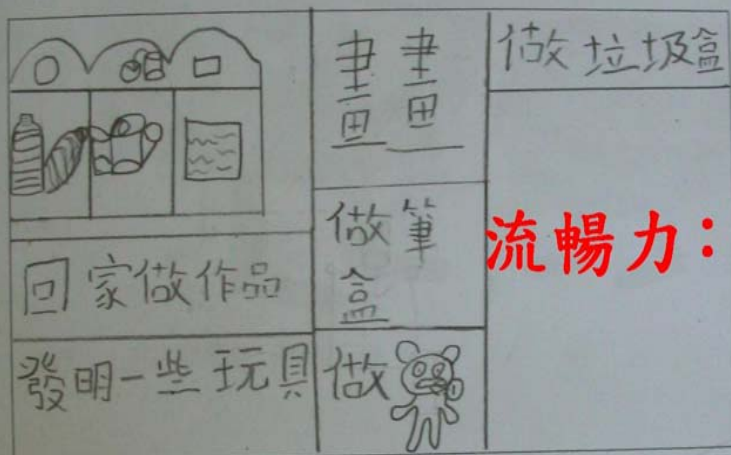 回家做作品
發明一些玩具
畫畫
做筆
盒
做
做垃圾盒
流暢力：